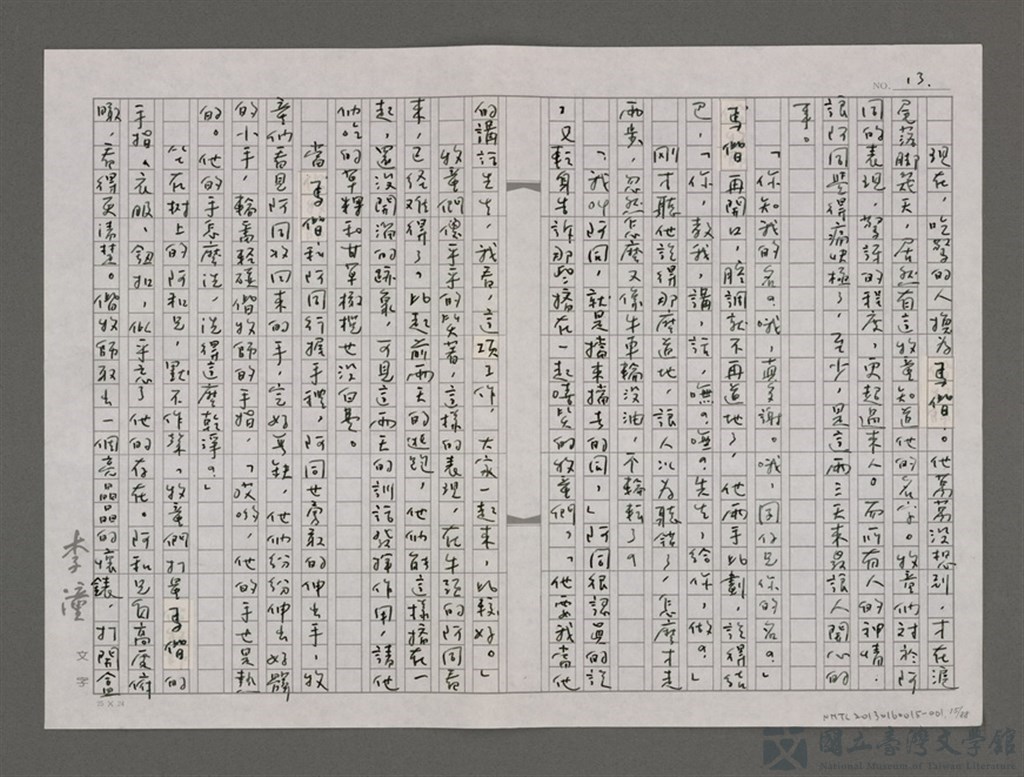 NO. 13.
現在，吃驚的人換為馬偕。他萬萬沒想到，才在滬
尾落腳幾天，居然有這牧童知道他的名字。牧童們對於阿
同的表現，驚訝的程度，更超過來人。而所有人的神情，
讓阿同覺得痛快極了，至少，是這兩三天來最讓人開心的
事。
「你知我的名？哦，真多謝。哦，同仔是你的名？」
馬偕再開口，腔調就不再道地了，他兩手比劃，說得結
巴，「你，教我，講，話，嘸？嘸？先生，給你，做？」
剛才聽他說得那麼道地，讓人以為聽錯了，怎麼才走
兩步，忽然怎麼又像牛車輪沒油，不輪轉了？
「我叫阿同，就是擋來擋去的同，」阿同很認真的說
，又轉身告訴那些擠在一起嘻笑的牧童們，「他要我當他
的講話先生，我看，這項工作，大家一起來，比較好。」
牧童們傻乎乎的笑著，這樣的表現，在牛頭的阿同看
來，已經難得了，比起前兩天的逃跑，他們能這樣擠在一
起，還沒開溜的跡象，可見這兩天的訓話發揮作用，請他
們吃的草粿和甘草橄欖也沒白費。
當馬偕和阿同行握手禮，阿同也勇敢的伸出手，牧
童們看見阿同收回來的手，完好無缺，他們紛紛伸出好髒
的小手，輪番輕碰偕牧師的手指，「哎喲，他的手也是熱
的。他的手怎麼洗，洗得這麼乾淨？」
坐在樹上的阿和兄，默不作聲。牧童們打量馬偕的
手指、衣服、鈕扣，似乎忘了他的存在。阿和兄自高處俯
瞰，看得更清楚。偕牧師取出一個亮晶晶的懷錶，打開盒
李潼
文字
NMTL20130160015-001
國立臺灣文學館
National Museum of Taiwan Literature